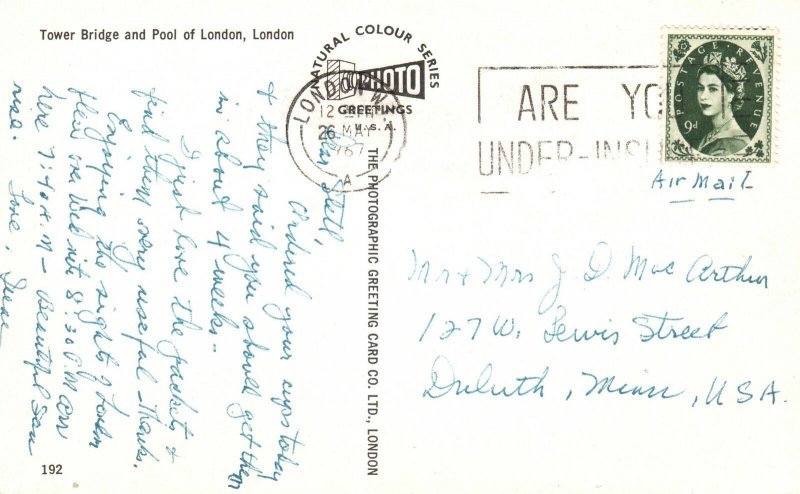 Tower Bridge and Pool of London, London
NATURAL COLOUR SERIES
PHOTO
GREETINGS
U.S.A.
LONDON W.
12
26 MAY
1967
A
ARE YO
UNDER-INSU
POSTAGE REVENUE
9d
Air Mail
Mr & Mrs J. D. Mac Arthur
127 W. Lewis Street
Duluth, Minn, U.S.A.
THE PHOTOGRAPHIC GREETING CARD CO. LTD., LONDON
Dear
Ordered your cups today
& they said you should get them
in about 4 weeks.
I just love the jackets &
find them very useful - Thanks.
Enjoying the sights of London
flew in Wed nite 8:30 P.M arr
here 7:40 A.M - Beautiful Sun
rise. Love,
192